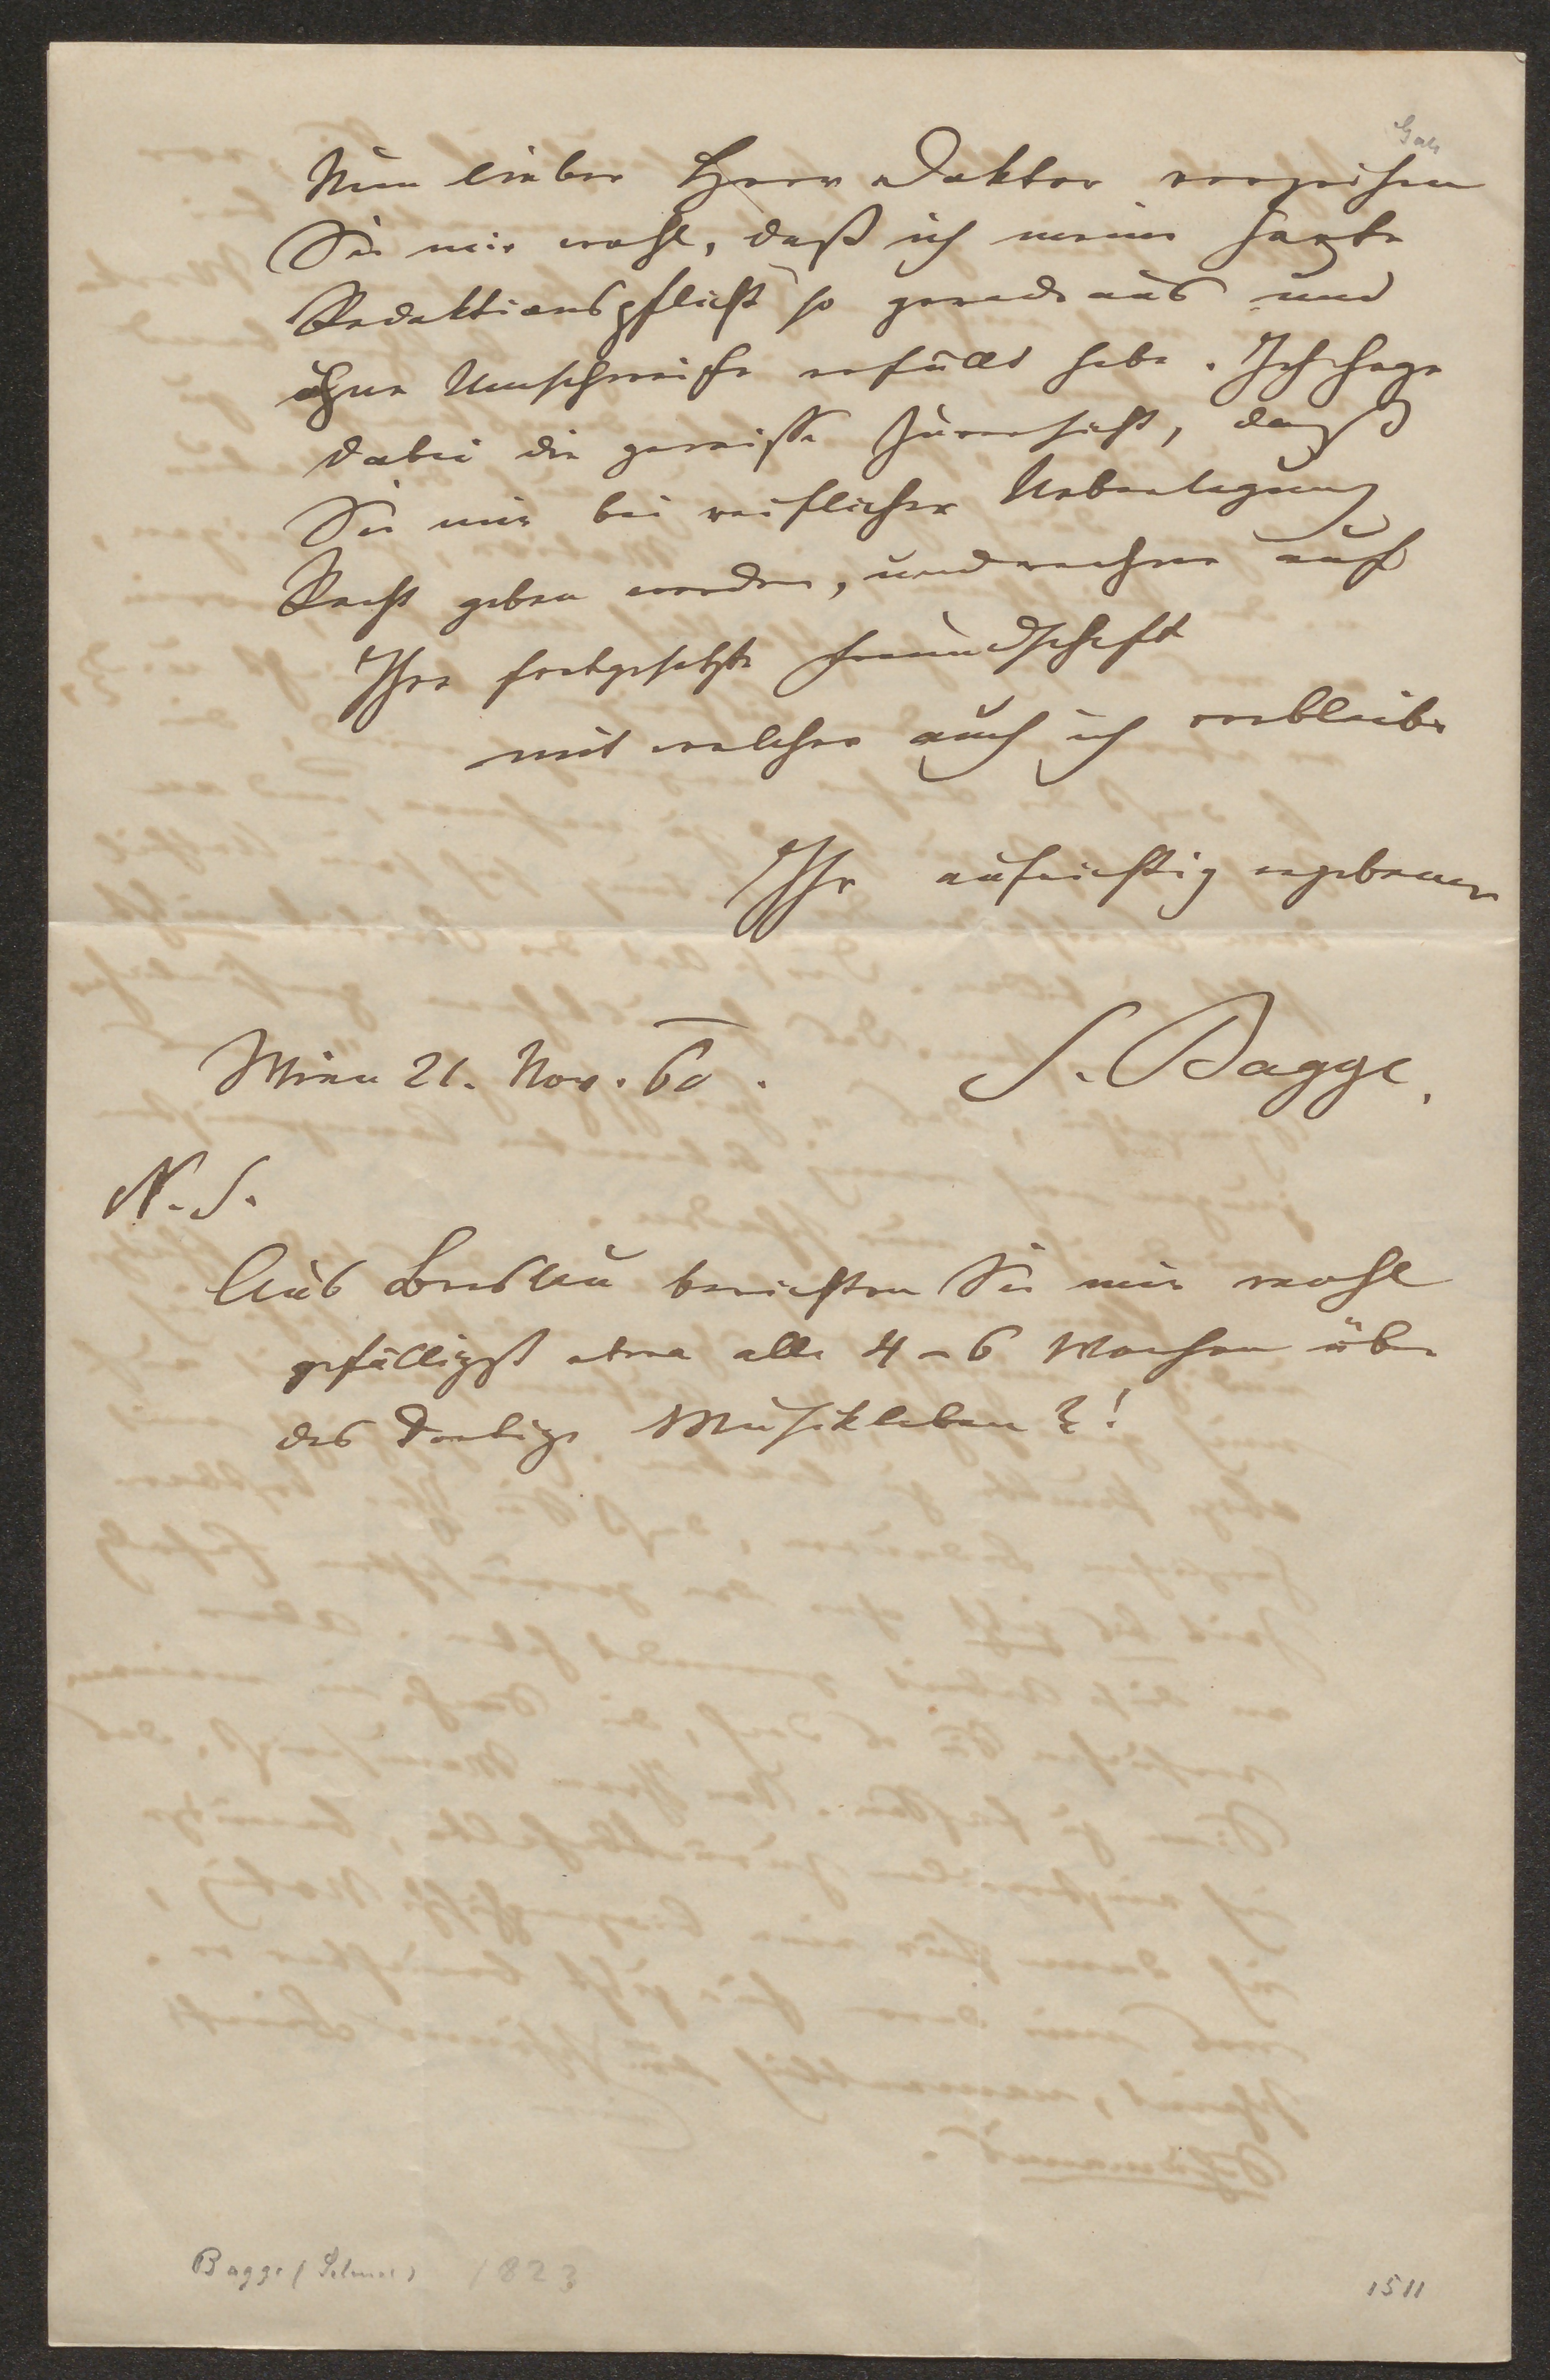 Nun lieber Herr Doktor verzeihen
Sie mir wohl, daß ich meine harte
Redaktionspflicht so gerade aus und
ohne Umschweife erfüllt habe. Ich hege
dabei die gewisse Zuversicht, daß
Sie mir bei reiflicher Ueberlegung
Recht geben werden, und rechne auf
Ihre fortgesetzte Freundschaft
mit welcher auch ich verbleibe
Ihr aufrichtig ergebener
S. Bagge.
Wien 21. Nov. 60.
N. S.
Aus Breslau berichten Sie mir wohl
gefälligst etwa alle 4–6 Wochen über
das dortige Musikleben?!
Bagge (Selmar) 1823
1511